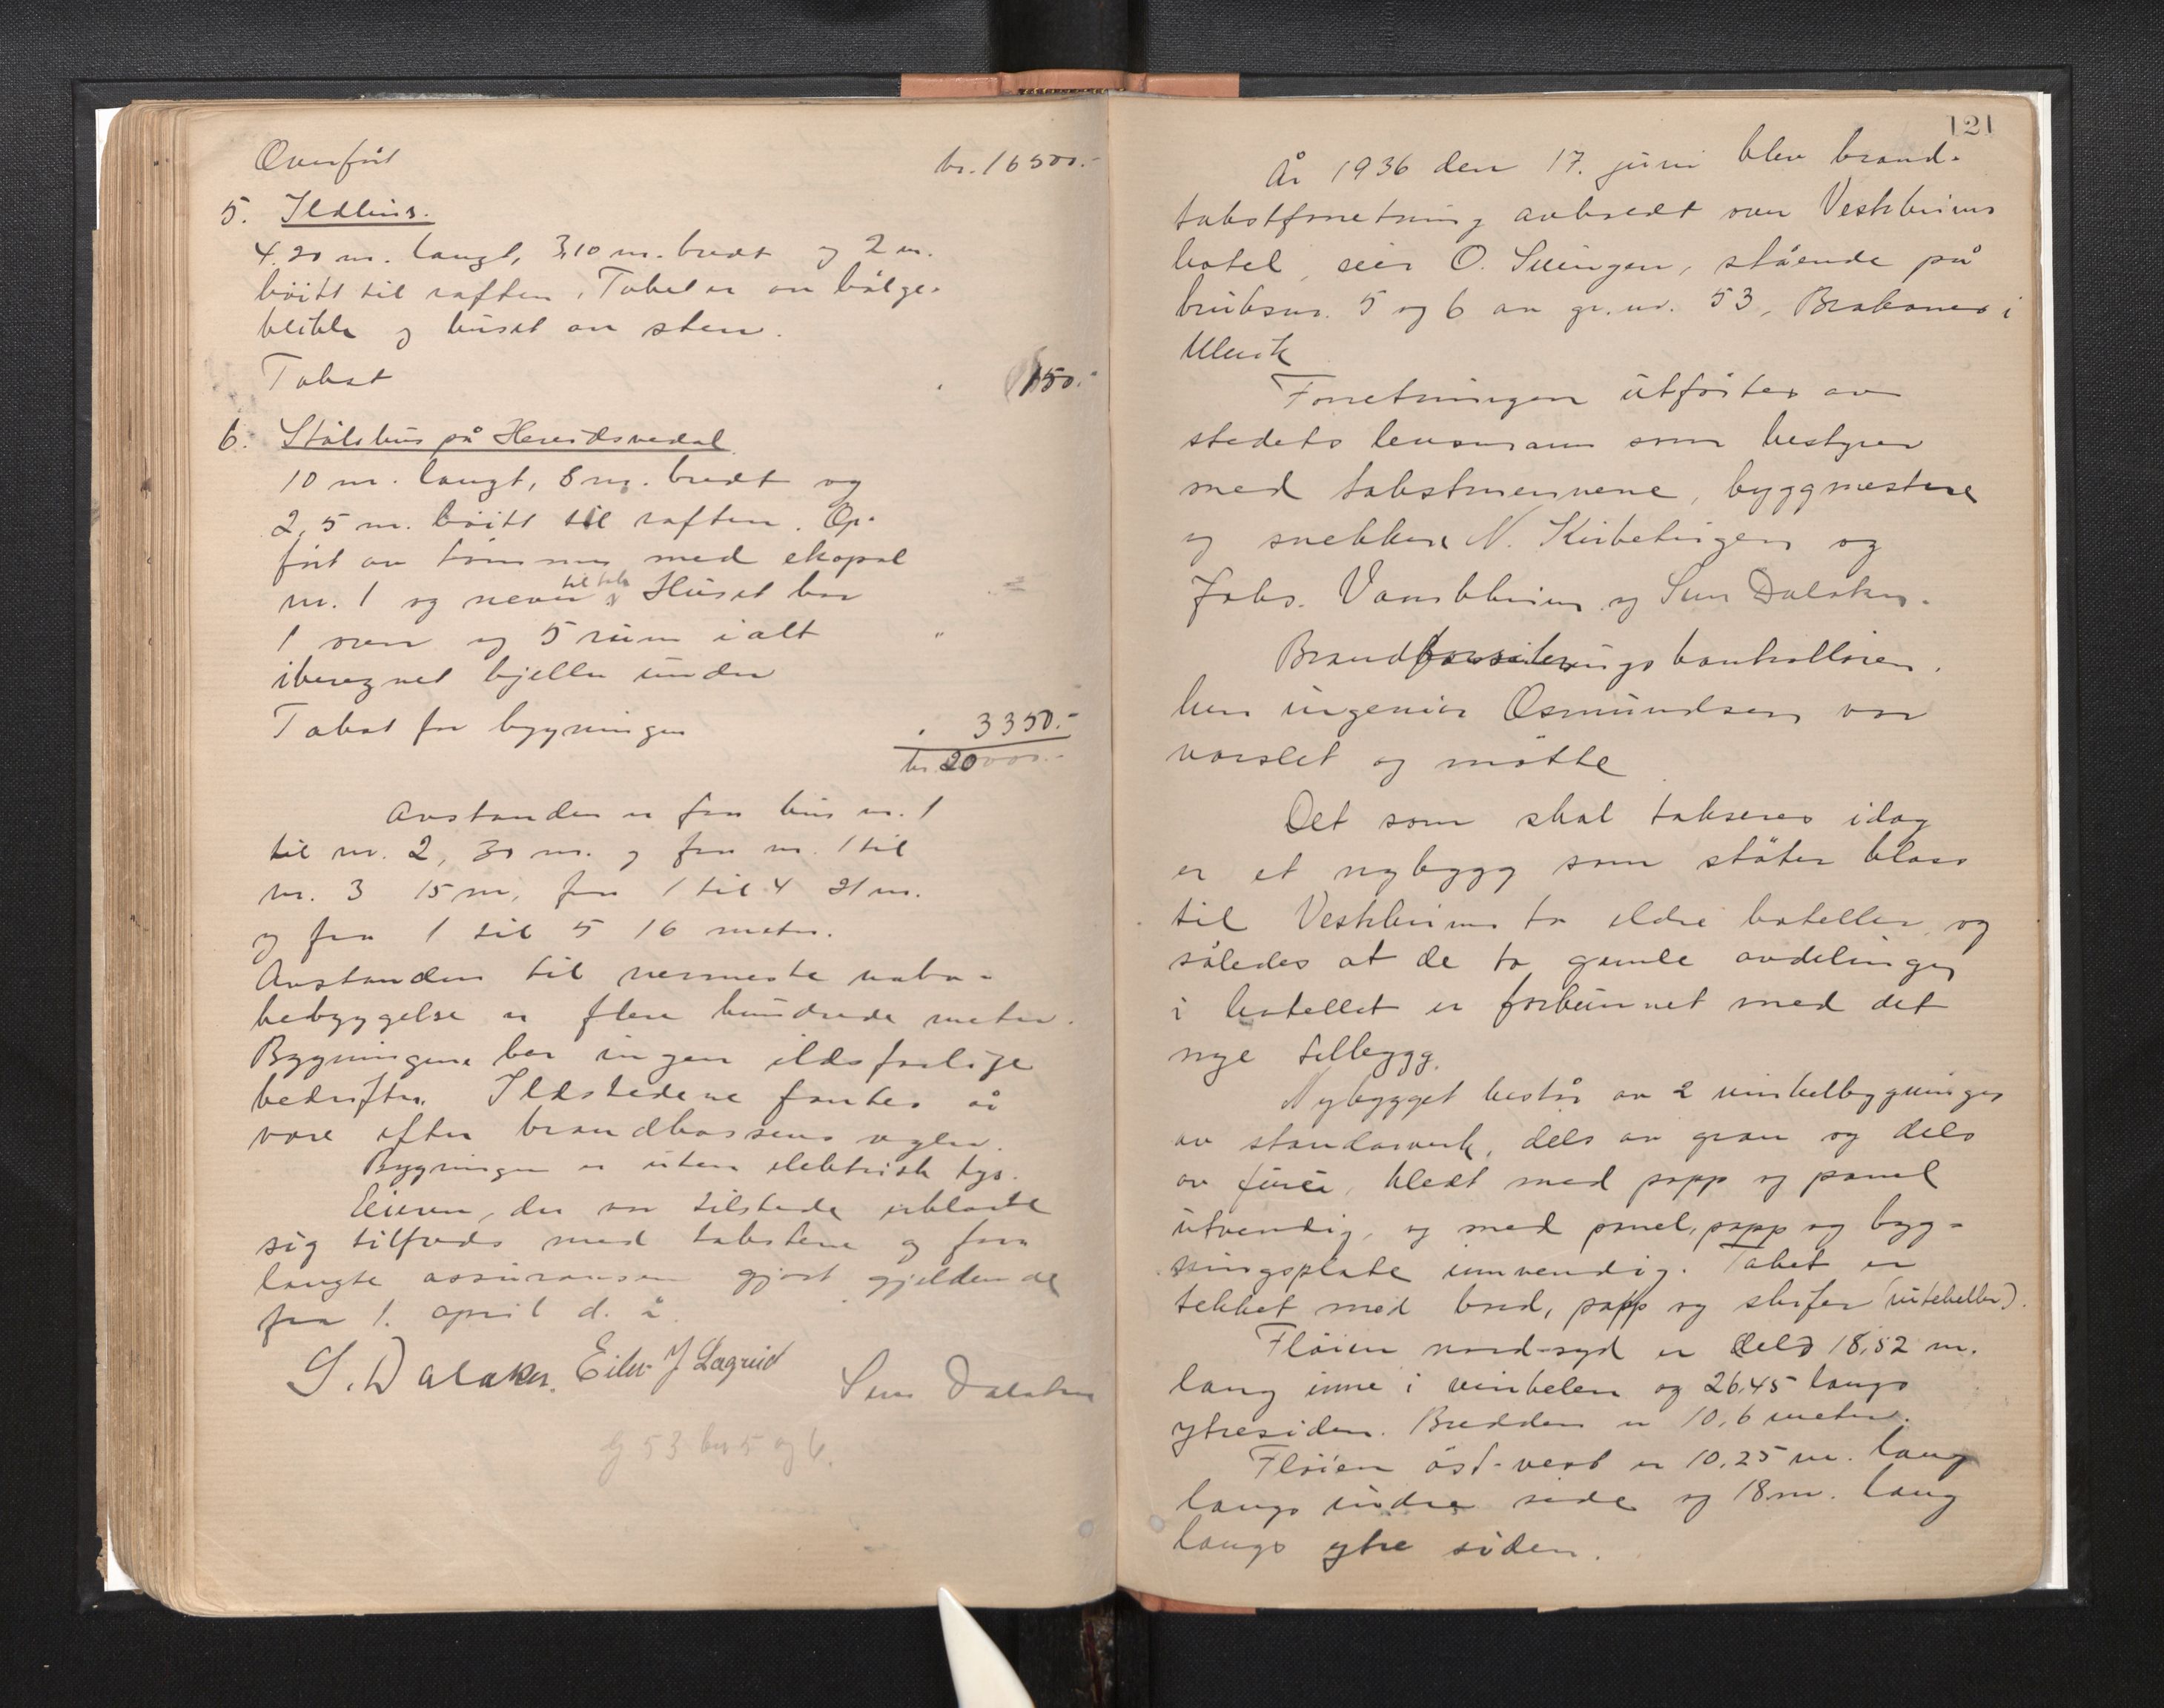 Overført kr. 16500.-
5. Ildhus.
4.20 m. langt, 3,10 m. bredt og 2 m.
höitt til raften. Taket er av bölge-
blikk og huset av sten.
Takst 150.-
6. Stölshus på
10 m. langt, 8 m. bredt og
2,5 m. höitt til raften. Op-
fört av tömmer med ekopal
nr. 1 og never til tak. Huset har
1 ovn og 5 rum ialt
iberegnet kjeller under
Takst for bygningen " 3350.-
kr. 20000.-
Avstanden er fra hus nr. 1
til nr. 2, 30 m. og fra nr. 1 til
nr. 3 15 m, fra 1 til 4 21 m.
og fra 1 til 5 16 meter.
Avstanden til nermeste nabo-
bebyggelse er flere hundrede meter.
Bygningene har ingen ildsfarlige
bedrifter. Ildstedene fantes å
være efter brandkassens regler.
Bygningen er uten elektrisk lys.
Eieren, der var tilstede erklærte
sig tilfreds med takstene og for-
langte assuransen gjort gjeldende
fra 1. april d. å.
S. Dalaker. Eilev J Lægreid Sven Dalaker
G 53 br 5 og 6.
121
År 1936 den 17. juni blev brand-
takstforretning avholdt over Vestheim
hotel, eier O. Svingen, stående på
bruksnr. 5 og 6 av gr. nr. 53, Brakanes i
Ulvik
Forretningen utförtes av
stedets lensmann som bestyrer
med takstmennene, byggmestere
og snekkere N. og
Johs. Vambheim og Sven Dalaker.
Brandforsikringskontrollören,
herr ingeniör Osmundsen var
varslet og mötte
Det som skal takseres idag
er et nybygg som stöter kloss
til Vestheims to eldre hoteller, og
således at de to gamle avdelinger
i hotellet er forbunnet med det
nye tilbygg.
Nybygget består av 2 vinkelbygninger
av standarverk, dels av gran og dels
av furu, kledt med papp og panel
utvendig, og med panel, papp og byg-
ningsplate innvendig. Taket er
tekket med bord, papp og skifer (viteheller).
Flöien nord-syd er dels 18,52 m.
lang inne i vinkelen og 26,45 langs
ytresiden. Bredden er 10,6 meter.
Flöien öst-vest er 10,25 m. lang
langs indre side og 18 m. lang
langs ytre siden.